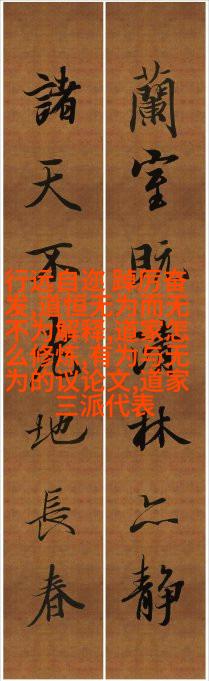 蘭室既林亦靜
諸天不地長春
行远自迩,踔厉奋
发,道恒无为而无
不为解释,道家怎
么修炼,有为与无
为的议论文,道家
三派代表